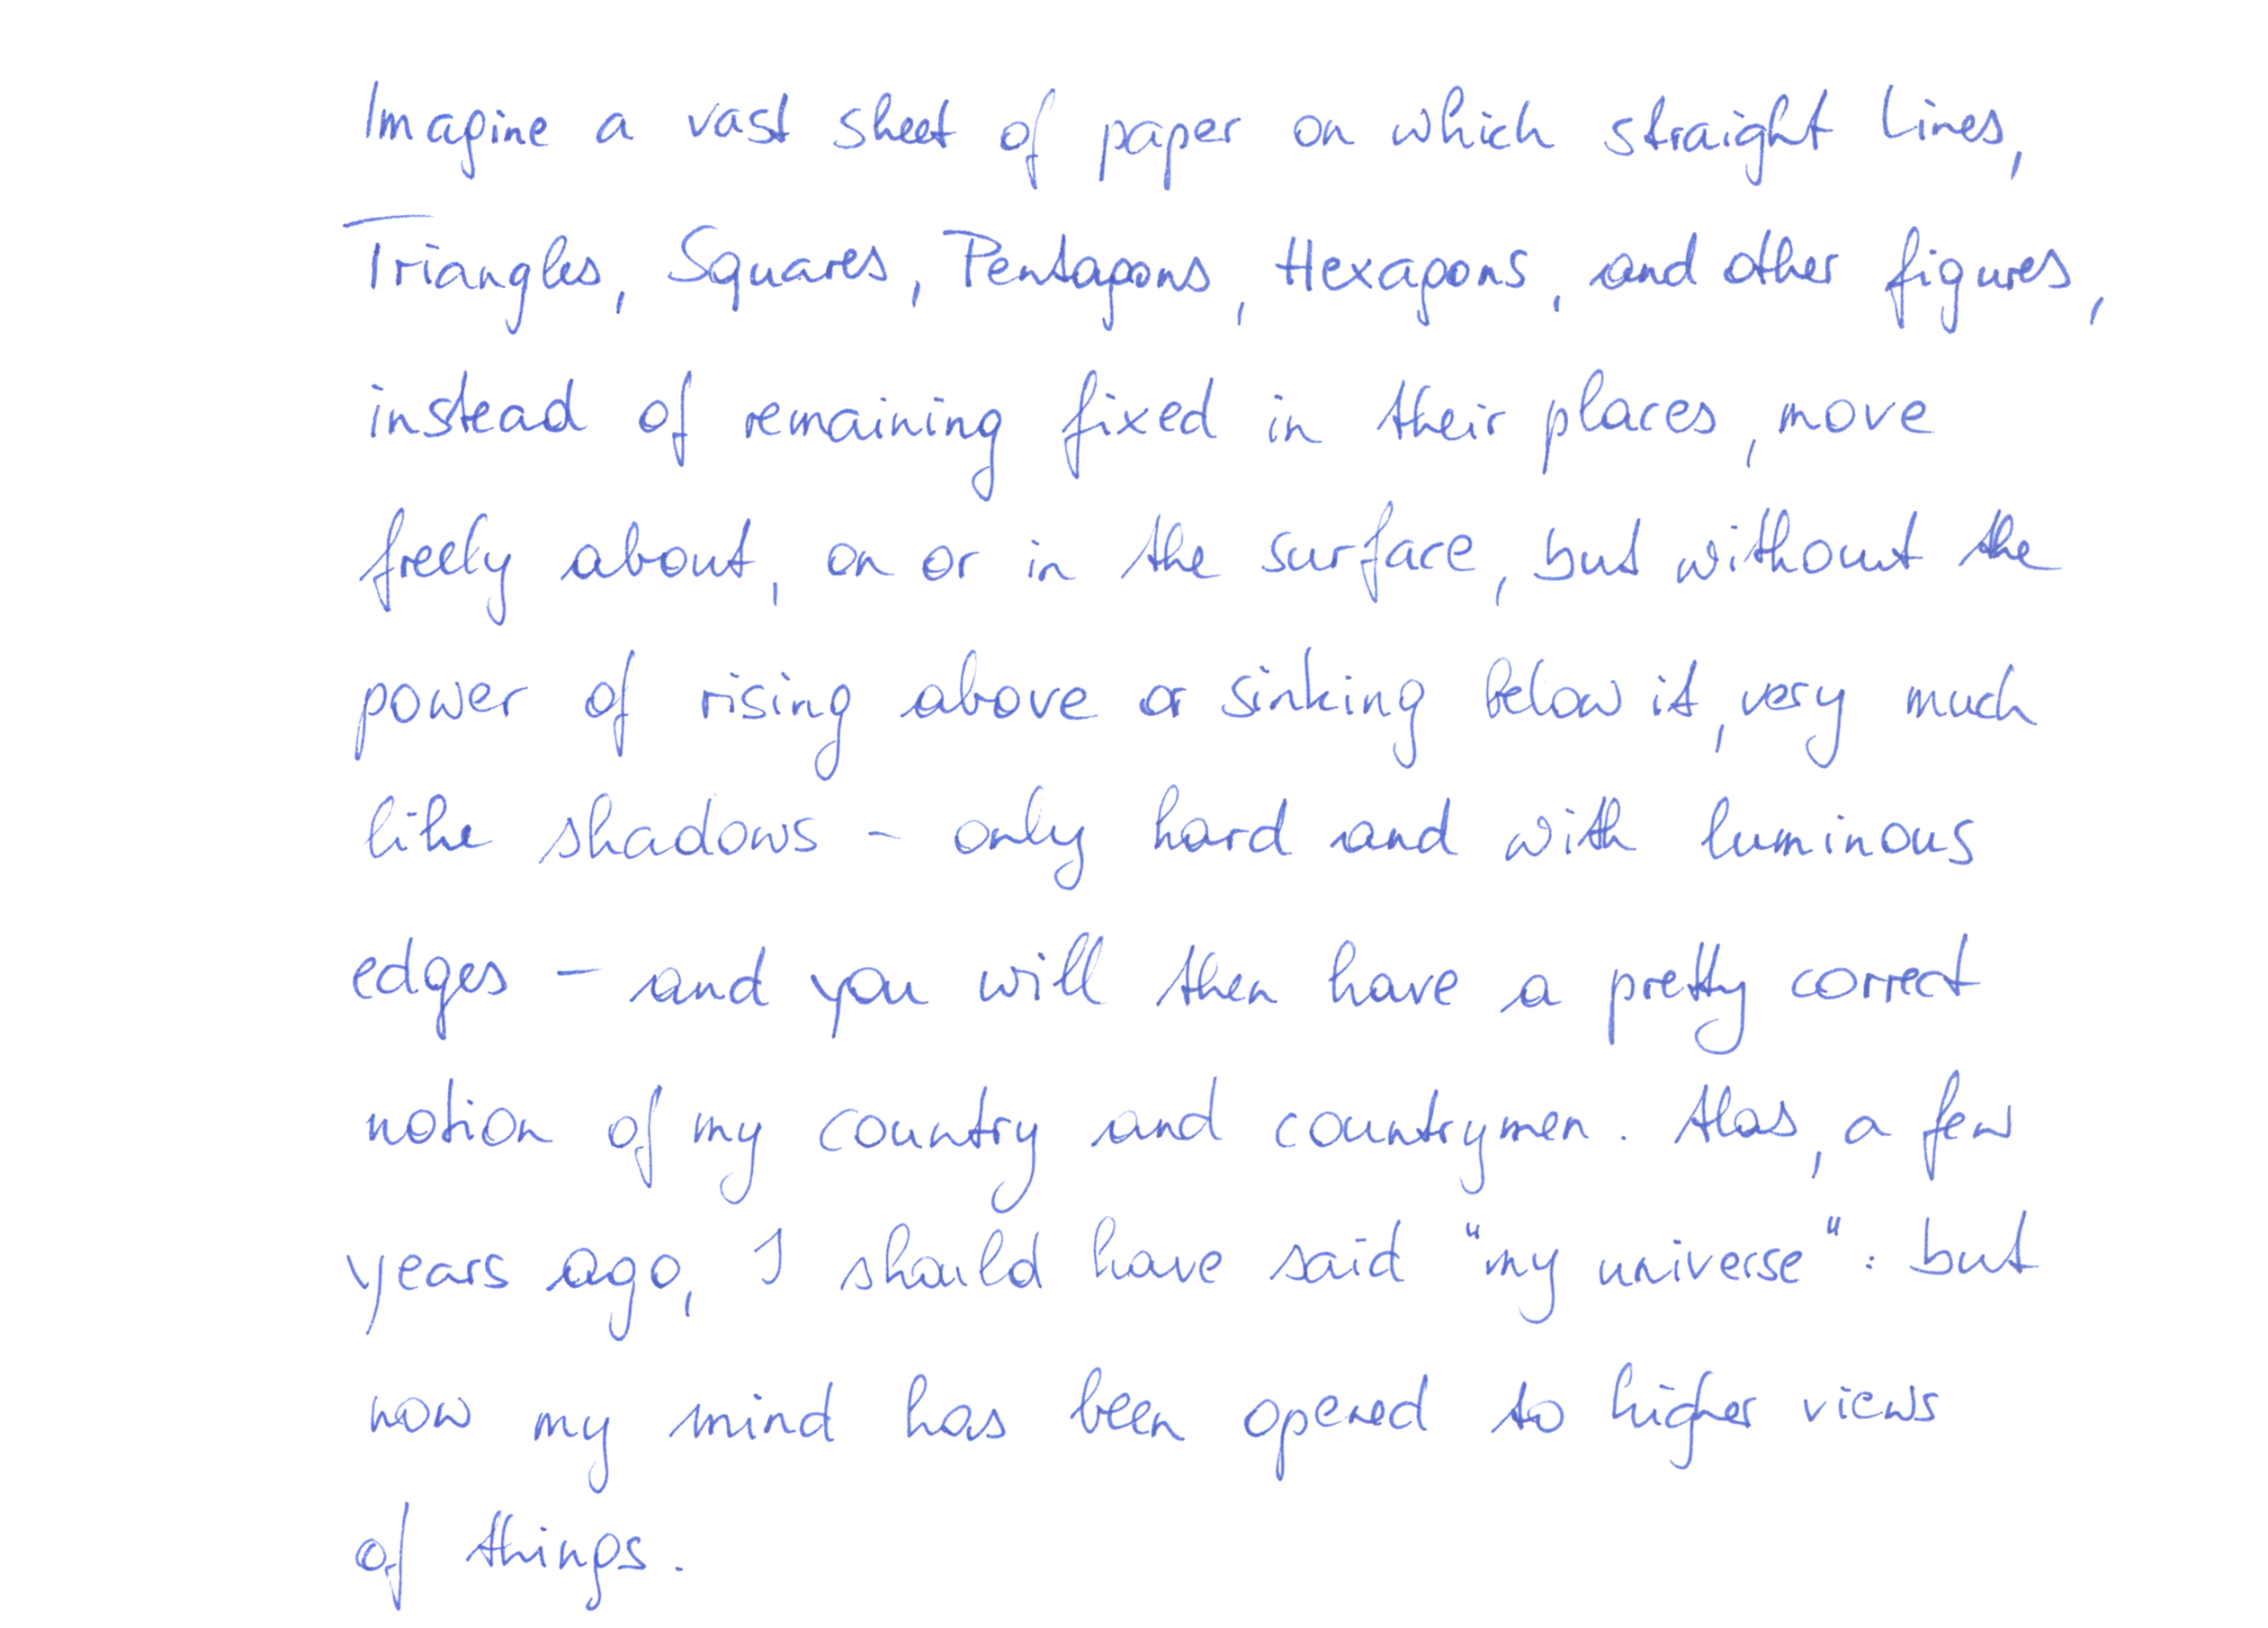 Imagine a vast sheet of paper on which straight Lines,
Triangles, Squares, Pentagons, Hexagons, and other figures,
instead of remaining fixed in their places, move
freely about, on or in the surface, but without the
power of rising above or sinking below it, very much
like shadows - only hard and with luminous
edges - and you will then have a pretty correct
notion of my country and countrymen. Alas, a few
years ago, I should have said "my universe": but
now my mind has been opened to higher views
of things.